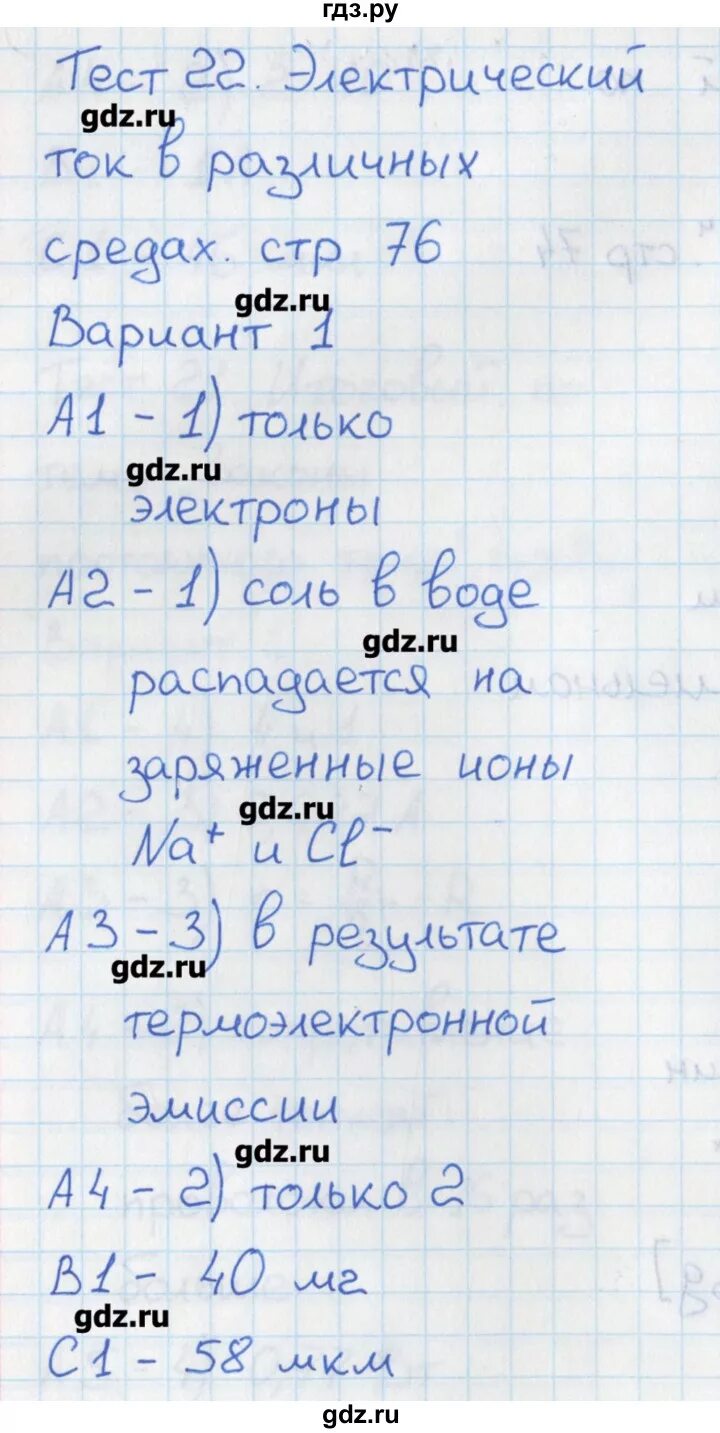 гдз.ру
Тест 22. Электрический
gdz.ru
ток в различных
средах. стр 76
gdz.ru
Вариант 1
А1 - 1) только
gdz.ru
электроны
А2 - 1) соль в воде
gdz.ru
распадается на
заряженные ионы
gdz.ru
Na⁺ и Cl⁻
А3 - 3) в результате
gdz.ru
термоэлектронной
эмиссии
gdz.ru
А4 - 2) только 2
В1 - 40 мг
gdz.ru
С1 - 58 мкм
gdz.ru